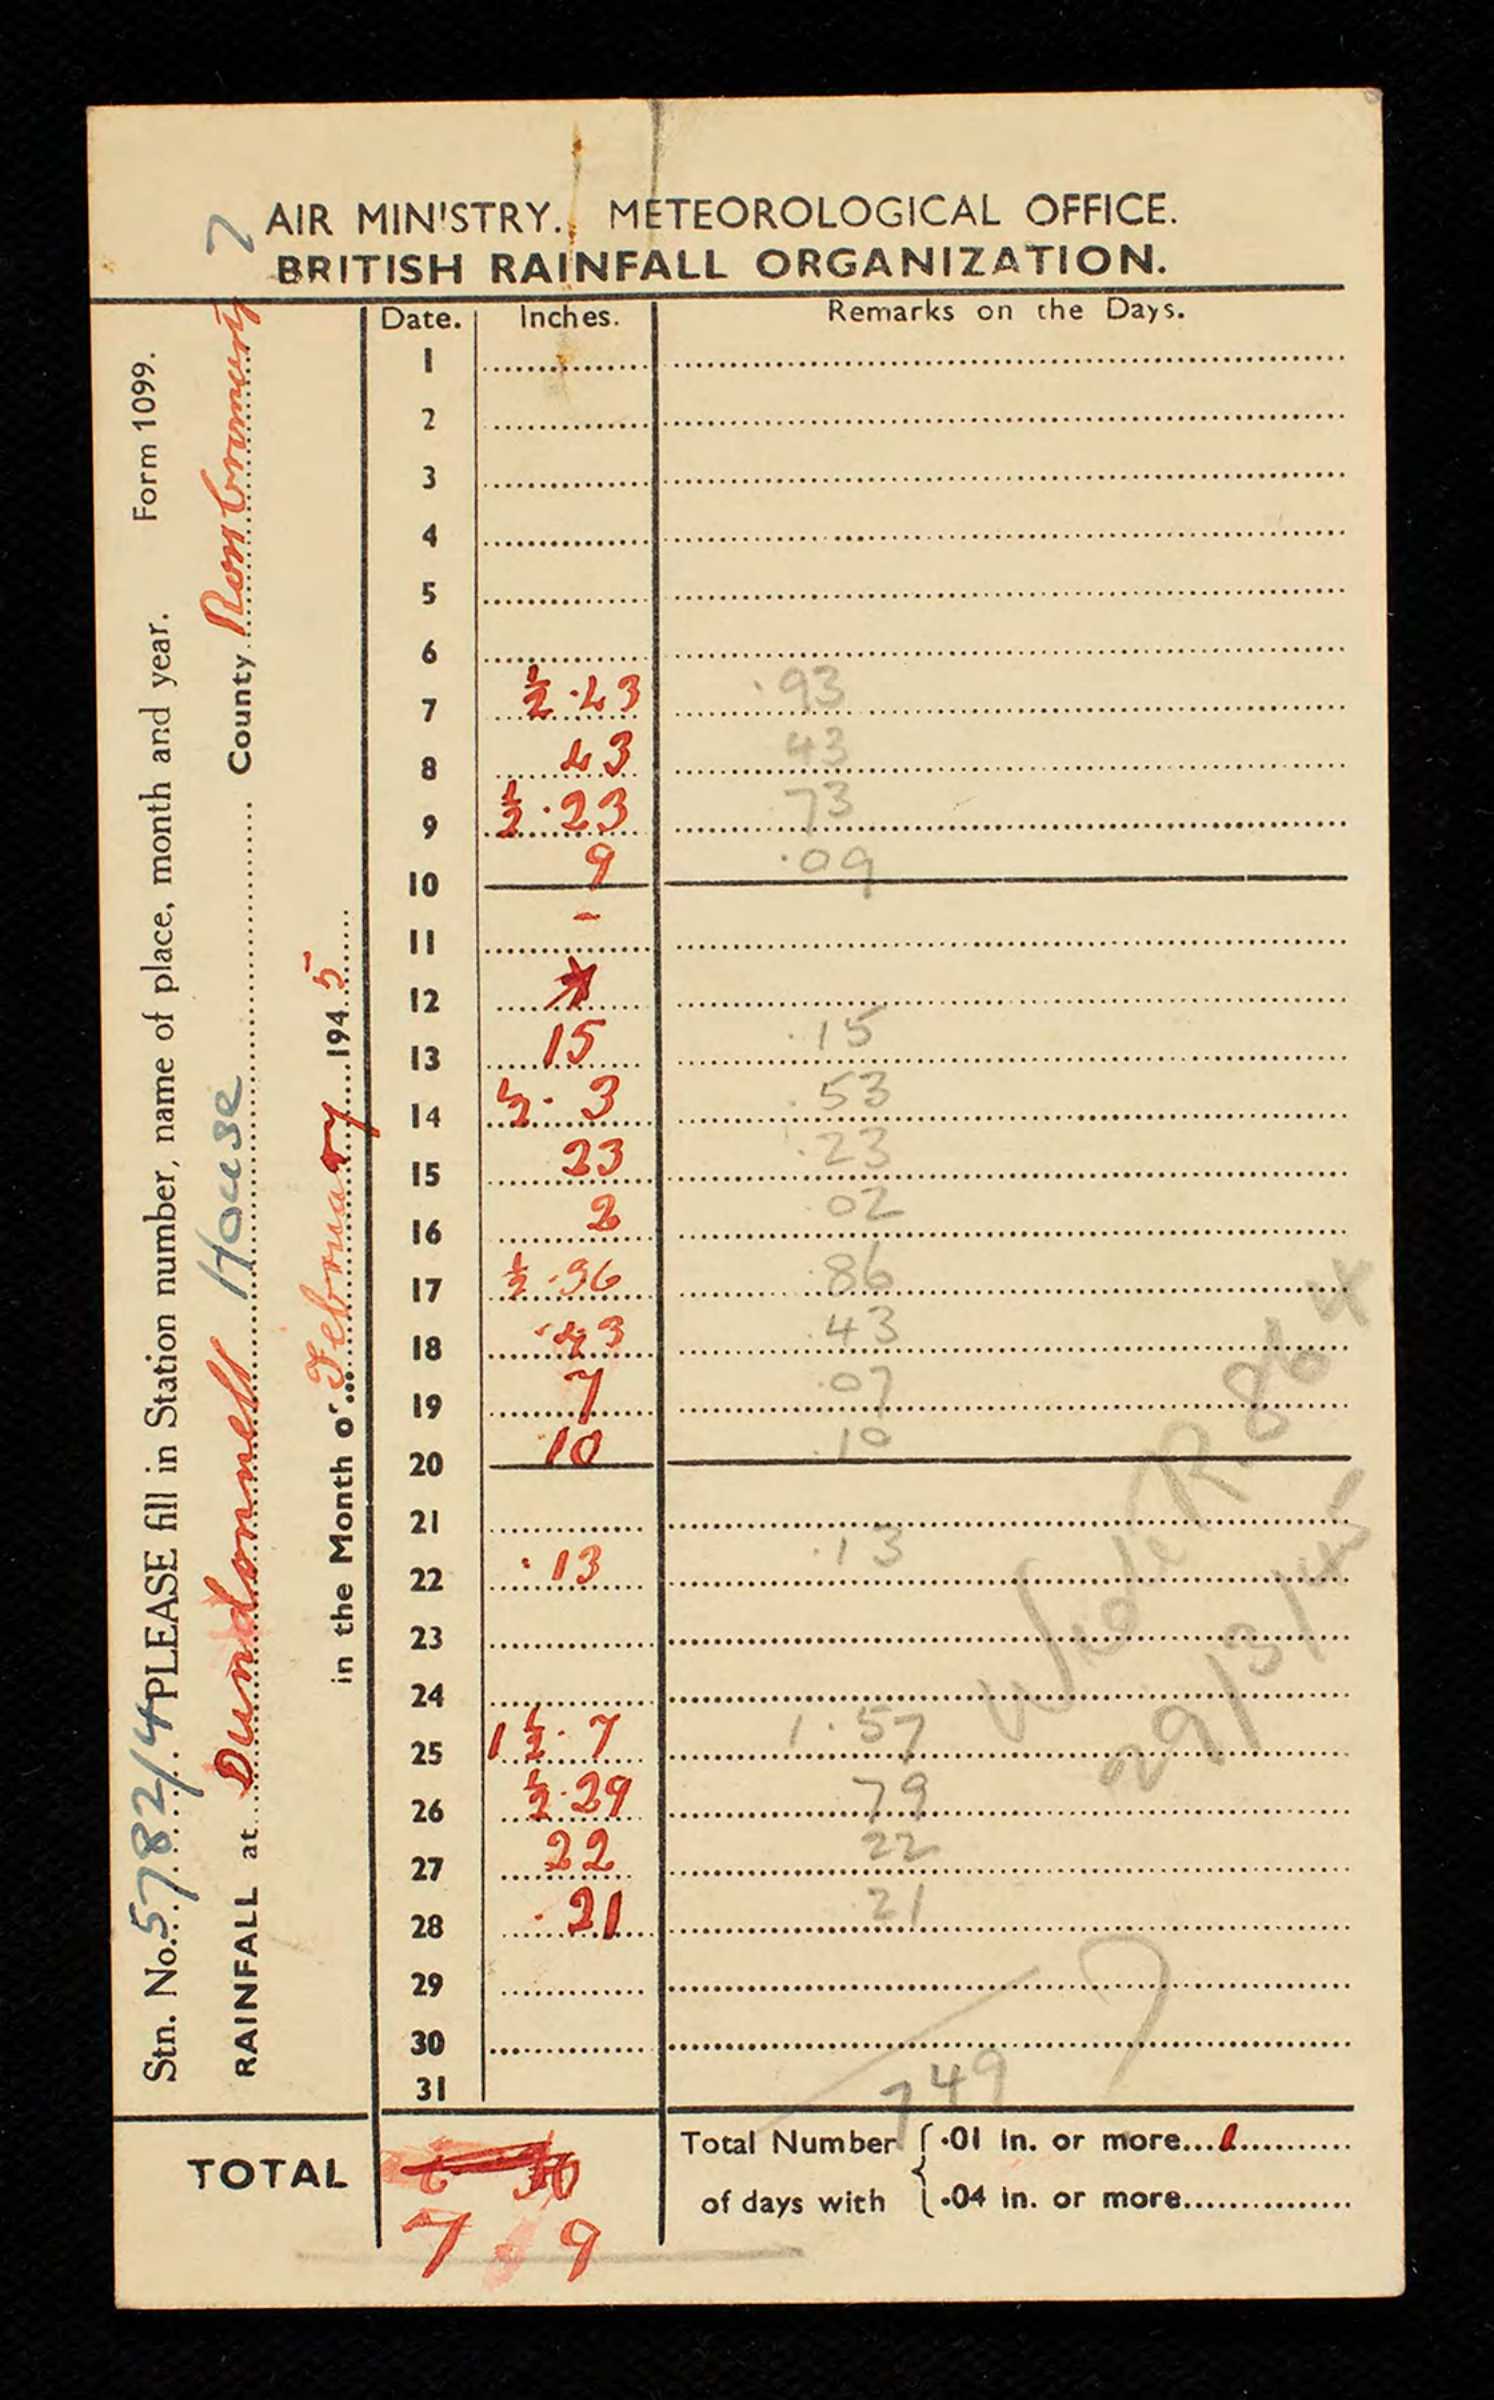 7
AIR MINISTRY. METEOROLOGICAL OFFICE.
BRITISH RAINFALL ORGANIZATION.
Form 1099.
Stn. No. 5782/4 PLEASE fill in Station number, name of place, month and year.
RAINFALL at Dundonnell House County
in the Month o' February 1945
Date. Inches. Remarks on the Days.
1
2
3
4
5
6
7 ½ .43 .93
8 43 43
9 ½ .23 73
10 9 .09
11 -
12
13 15 .15
14 ½. 3 .53
15 23 .23
16 2 02
17 ½ .36 .86
18 .43 .43
19 7 .07
20 10 .10
21
22 .13 .13
23
24
25 1 ½. 7 1.57
26 ½.29 79
27 22 22
28 .21 21
29
30
31
R 864
29/3/45
7 49
TOTAL
7 9
Total Number of days with
.01 in. or more...
.04 in. or more...